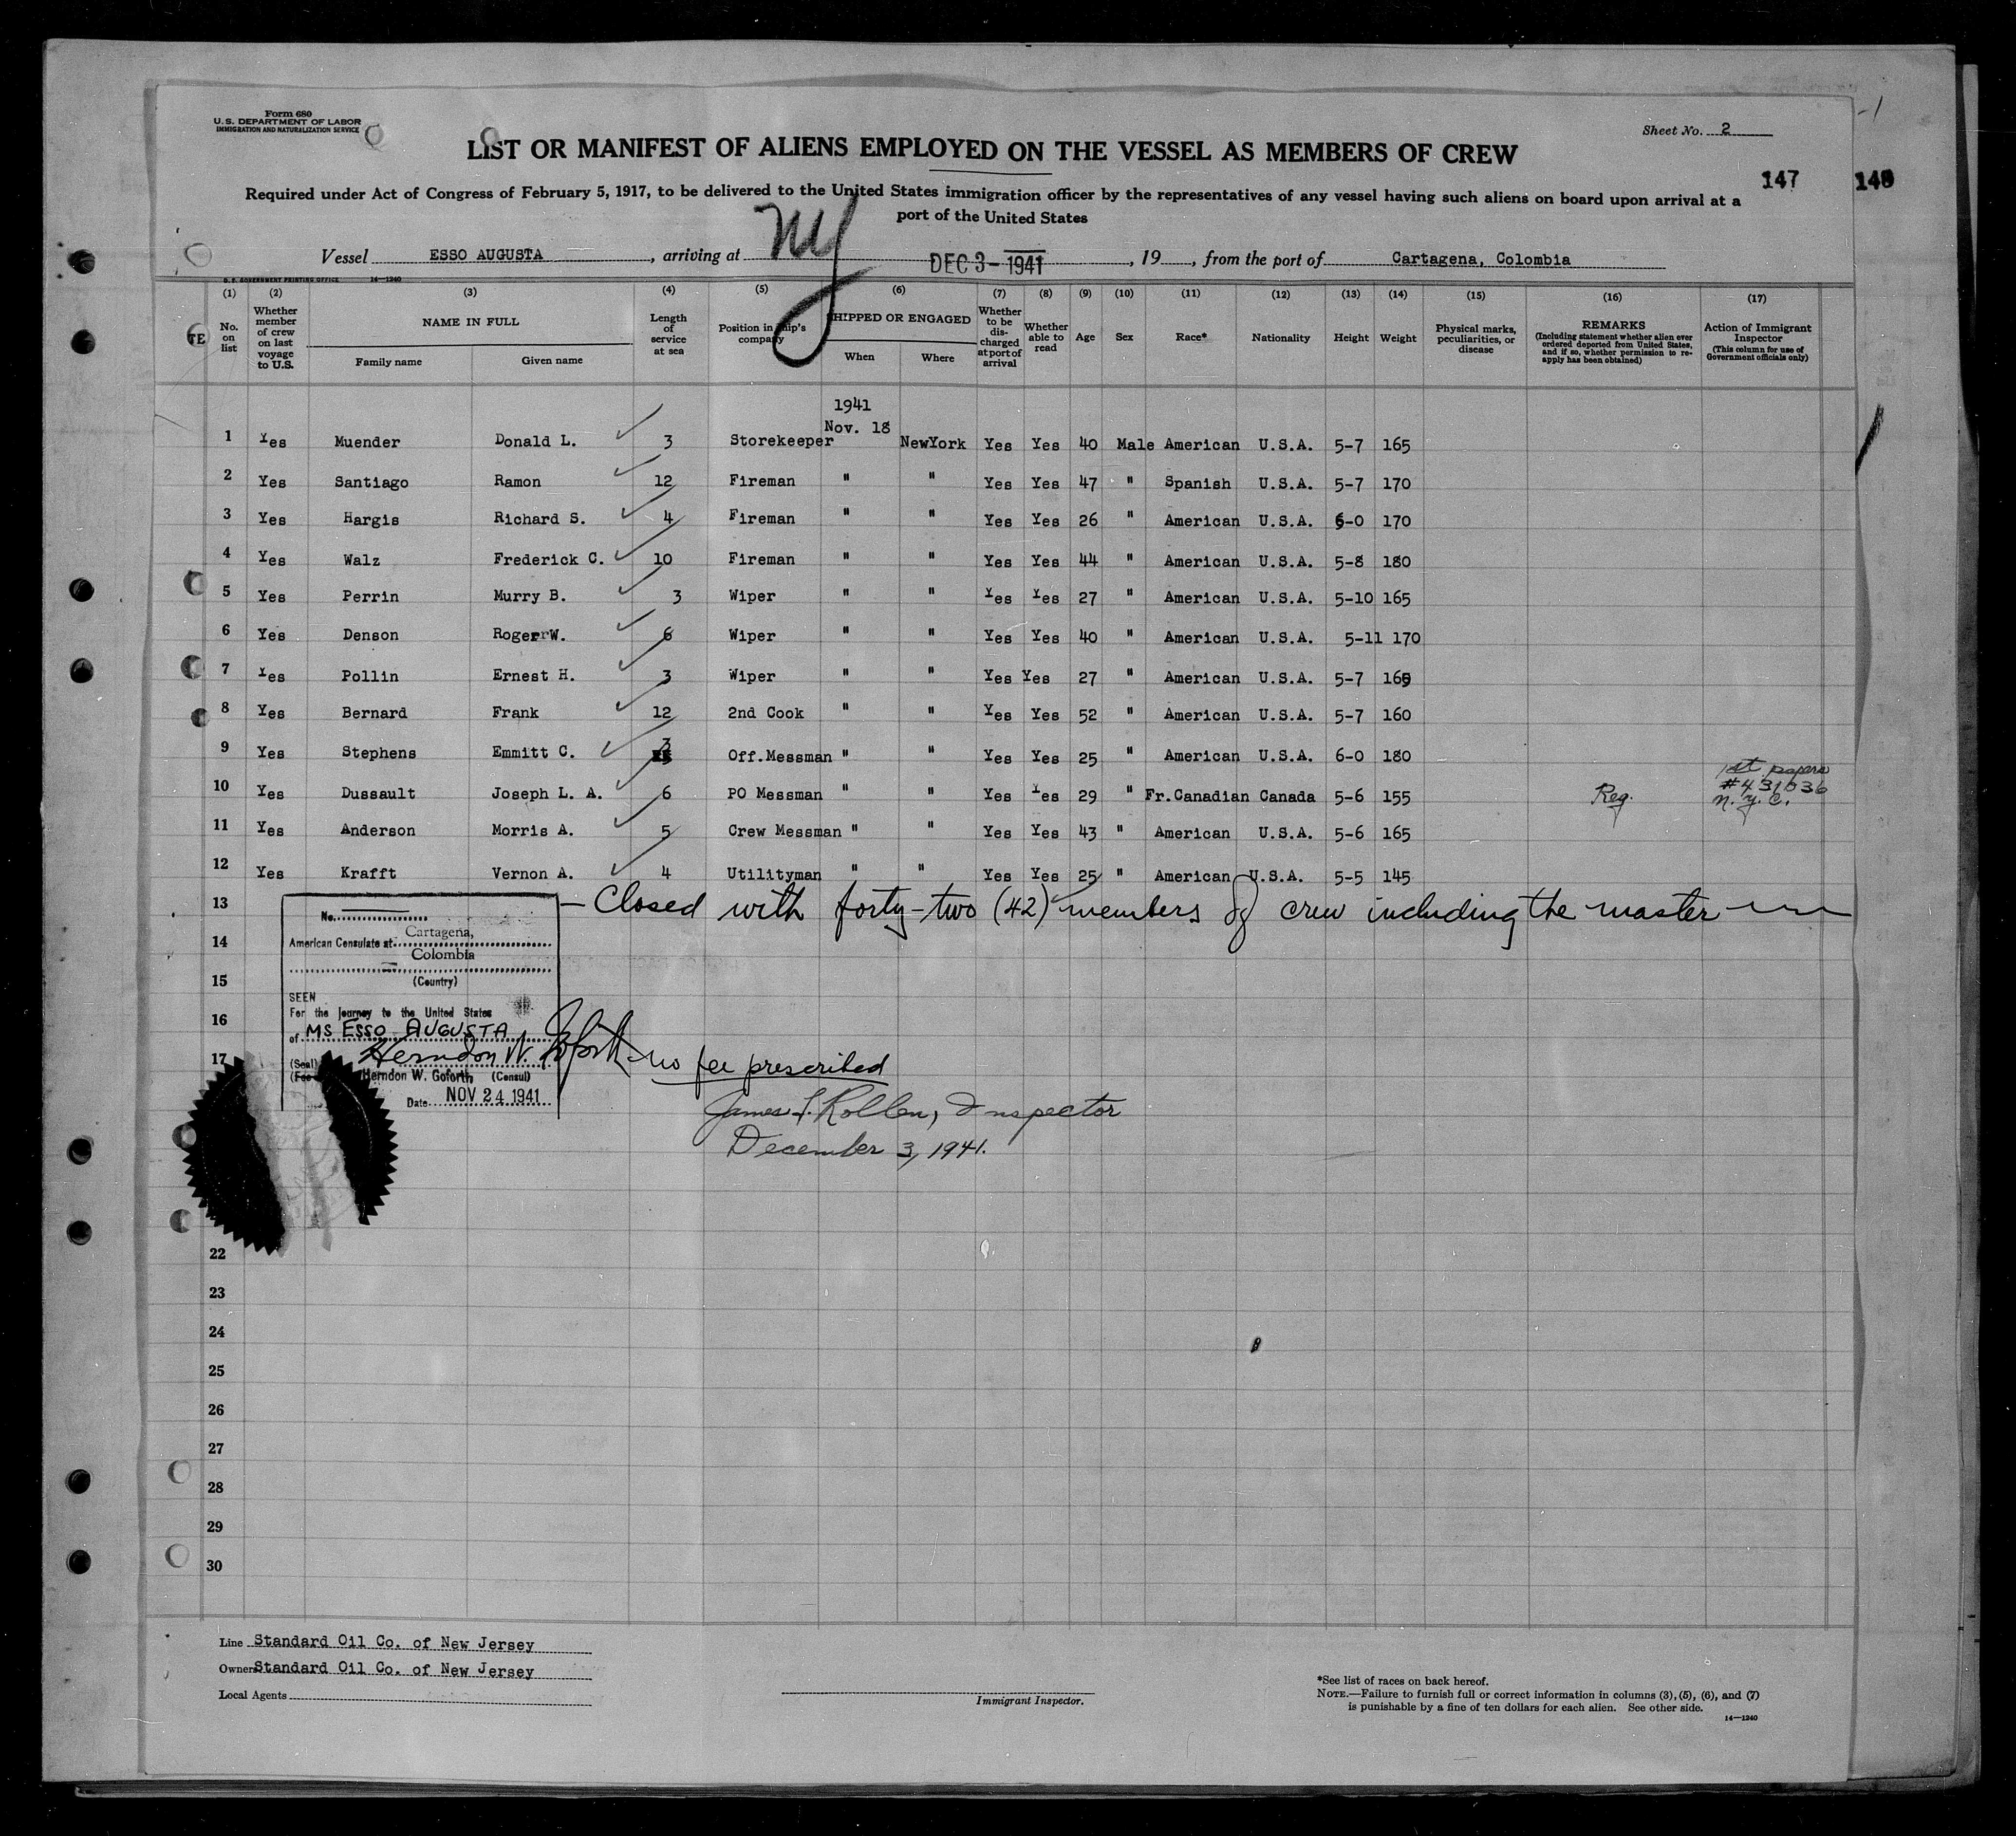 Form 680
U. S. DEPARTMENT OF LABOR
IMMIGRATION AND NATURALIZATION SERVICE
Sheet No. 2
LIST OR MANIFEST OF ALIENS EMPLOYED ON THE VESSEL AS MEMBERS OF CREW
147
Required under Act of Congress of February 5, 1917, to be delivered to the United States immigration officer by the representatives of any vessel having such aliens on board upon arrival at a
port of the United States
Vessel ESSO AUGUSTA, arriving at NY DEC 3 - 1941, 19, from the port of Cartagena, Colombia
U. S. GOVERNMENT PRINTING OFFICE 14—1240
(1) (2) (3) (4) (5) (6) (7) (8) (9) (10) (11) (12) (13) (14) (15) (16) (17)
No. on list
Whether member of crew on last voyage to U.S.
NAME IN FULL
Family name Given name
Length of service at sea
Position in ship's company
SHIPPED OR ENGAGED
When Where
Whether to be discharged at port of arrival
Whether able to read
Age
Sex
Race*
Nationality
Height
Weight
Physical marks, peculiarities, or disease
REMARKS
(Including statement whether alien ever ordered deported from United States, and if so, whether permission to reapply has been obtained)
Action of Immigrant Inspector
(This column for use of Government officials only)
TE
1941
1 Yes Muender Donald L. 3 Storekeeper Nov. 18 NewYork Yes Yes 40 Male American U.S.A. 5-7 165
2 Yes Santiago Ramon 12 Fireman " " Yes Yes 47 " Spanish U.S.A. 5-7 170
3 Yes Hargis Richard S. 4 Fireman " " Yes Yes 26 " American U.S.A. 6-0 170
4 Yes Walz Frederick C. 10 Fireman " " Yes Yes 44 " American U.S.A. 5-8 180
5 Yes Perrin Murry B. 3 Wiper " " Yes Yes 27 " American U.S.A. 5-10 165
6 Yes Denson Roger W. 6 Wiper " " Yes Yes 40 " American U.S.A. 5-11 170
7 Yes Pollin Ernest H. 3 Wiper " " Yes Yes 27 " American U.S.A. 5-7 165
8 Yes Bernard Frank 12 2nd Cook " " Yes Yes 52 " American U.S.A. 5-7 160
9 Yes Stephens Emmitt C. 3 Off.Messman " " Yes Yes 25 " American U.S.A. 6-0 180
10 Yes Dussault Joseph L. A. 6 PO Messman " " Yes Yes 29 " Fr.Canadian Canada 5-6 155 Reg. 1st papers #431036 N.Y.C.
11 Yes Anderson Morris A. 5 Crew Messman " " Yes Yes 43 " American U.S.A. 5-6 165
12 Yes Krafft Vernon A. 4 Utilityman " " Yes Yes 25 " American U.S.A. 5-5 145
13 — Closed with forty-two (42) members of crew including the master
14
15
16
17
22
23
24
25
26
27
28
29
30
No.
American Consulate at Cartagena,
Colombia
(Country)
SEEN
For the journey to the United States
of MS ESSO AUGUSTA
Herndon W. Goforth — no fee prescribed
(Seal)
(Fee
Herndon W. Goforth (Consul)
Date NOV 24 1941
James Inspector
December 3, 1941.
Line Standard Oil Co. of New Jersey
Owners Standard Oil Co. of New Jersey
Local Agents
Immigrant Inspector.
*See list of races on back hereof.
NOTE.—Failure to furnish full or correct information in columns (3), (5), (6), and (7)
is punishable by a fine of ten dollars for each alien. See other side.
14—1240